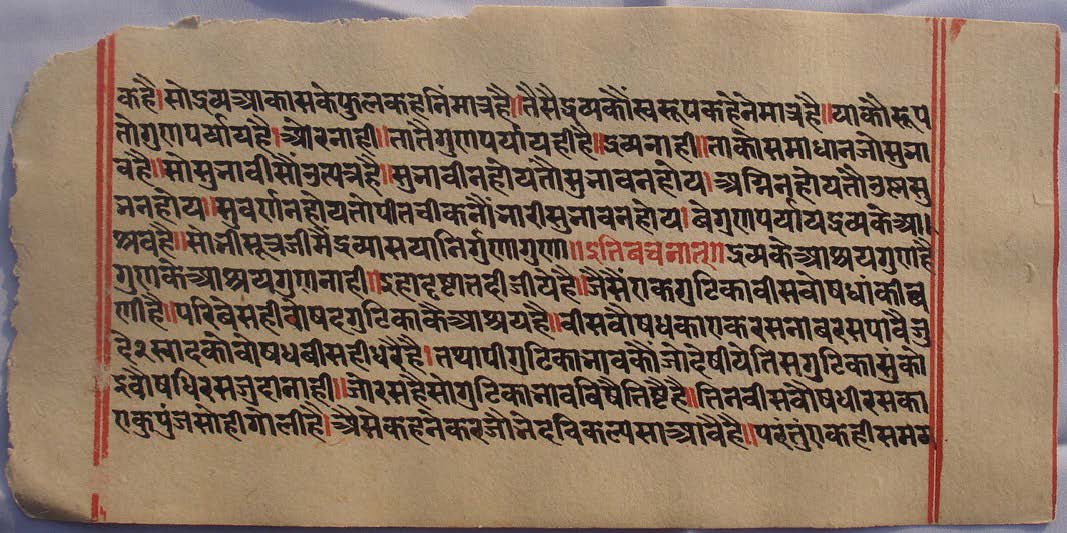 क है। सो द्रव्य आकास के फुल कहनिं मात्र है॥ तैसै द्रव्य कौं स्वरूप कहेने मात्र है॥ याकौ रूप
तो गुण पर्याय है। ओर नाही॥ तातै गुण पर्याय ही है॥ द्रव्य नाही॥ ताको समाधान जो सुना
व है॥ सो सुनावी सौं उत्पन्न है॥ सुनावी न होय तौ सुनाव न होय। अग्नि न होय तौ उष्न सु
नाव न होय॥ सुवर्ण न होय तो पीत चीकनौं नारी सुनाव न होय। वे गुण पर्याय द्रव्य के आ।
श्रव है॥ सो श्री सूत्रजी मैं द्रव्यासया निर्गुणा गुणा॥ इति वचनात्॥ द्रव्य के आश्रय गुण है
गुण के आश्रय गुण नाही॥ इहा दृष्टान्त दीजीये है॥ जैसैं एक गुटिका वीस वोषधां की ब
णी है॥ परि वे सही वोषद गुटिका कै आश्रय है॥ वीस वौषध का एक रस नाव रस पावै जु
दे २ स्वाद को वौषध वीसही धरै है। तथापी गुटिका नाव कौं जो देषीये ति स गुटिका सु को
इ वौषधि रस जुदा नाही॥ जो रस है सो गुटिका नाव विषै तिष्टै है॥ तिन वीस वौषधी रस का
एक पुंज सो ही गोली है। अैसे कहने कर जौ नेद विकल्प सा आवै है॥ परंतुं एक ही समय